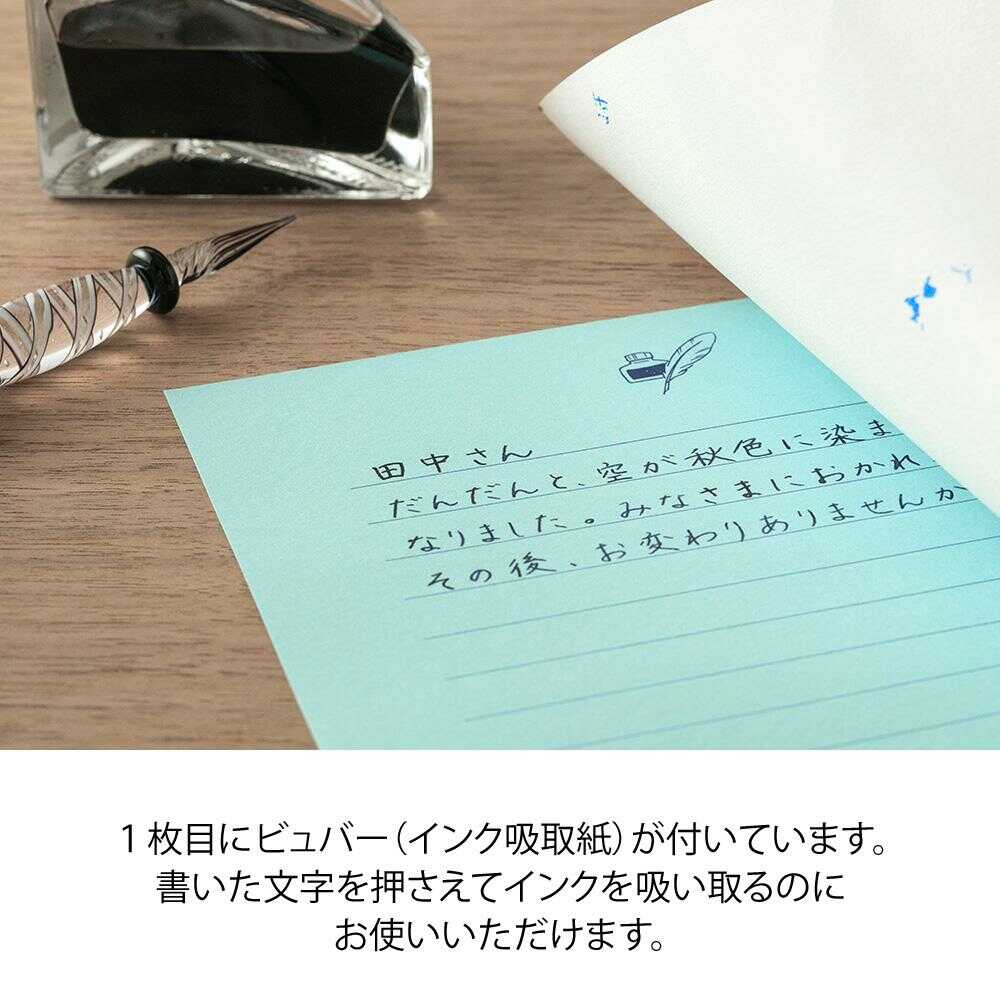 田中さん
だんだんと、空が秋色に染ま
なりました。みなさまにおかれ
その後、お変わりありませんか
1枚目にビュバー（インク吸取紙）が付いています。
書いた文字を押さえてインクを吸い取るのに
お使いいただけます。